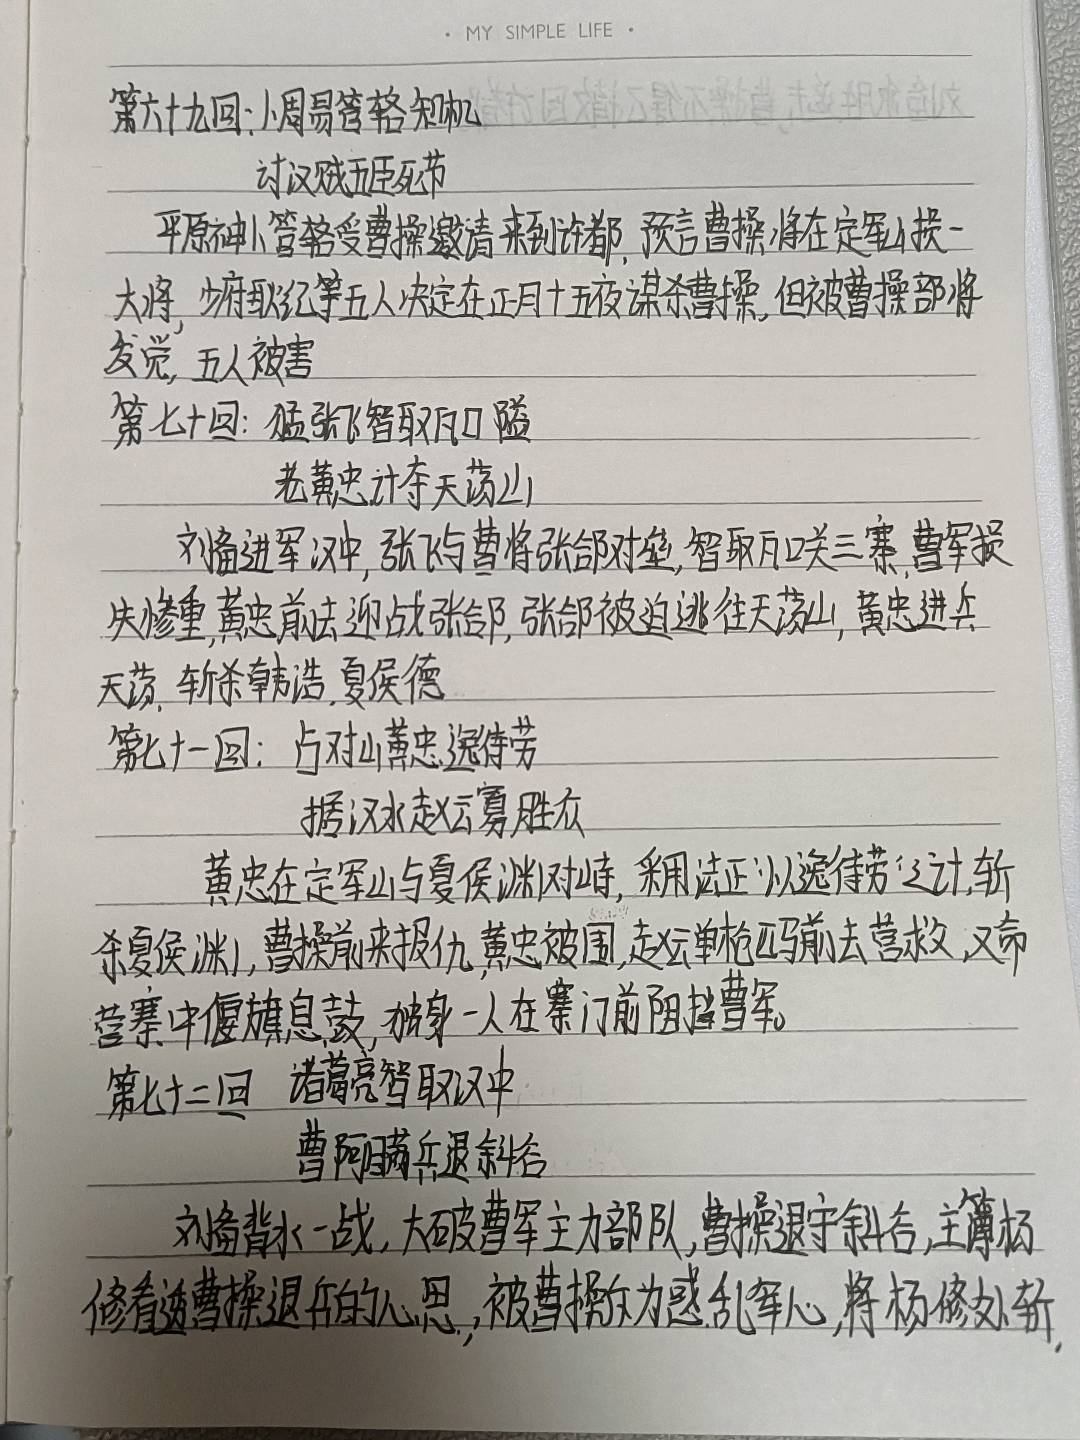 · MY SIMPLE LIFE ·
第六十九回:卜周易管辂知机
讨汉贼五臣死节
平原神卜管辂受曹操邀请来到许都,预言曹操将在定军山损一
大将,少府耿纪等五人决定在正月十五夜谋杀曹操,但被曹操部将
发觉,五人被害
第七十回:猛张飞智取瓦口隘
老黄忠计夺天荡山
刘备进军汉中,张飞与曹将张郃对垒,智取瓦口关三寨,曹军损
失惨重,黄忠前去迎战张郃,张郃被迫逃往天荡山,黄忠进兵
天荡,斩杀韩浩,夏侯德
第七十一回:占对山黄忠逸待劳
据汉水赵云寡胜众
黄忠在定军山与夏侯渊对峙,采用法正以逸待劳之计,斩
杀夏侯渊,曹操前来报仇,黄忠被围,赵云单枪匹马前去营救,又命
营寨中偃旗息鼓,独身一人在寨门前阻挡曹军。
第七十二回 诸葛亮智取汉中
曹阿瞒兵退斜谷
刘备背水一战,大破曹军主力部队,曹操退守斜谷,主簿杨
修看透曹操退兵的心思,被曹操以为惑乱军心,将杨修处斩,